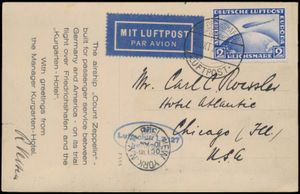 The airship „Count Zeppelin"-
built for passenger service between
Germany and America - on its trial
flight over Friedrichshafen and the
„Kurgarten-Hotel".
With greetings from
the Manager Kurgarten-Hotel.
MIT LUFTPOST
PAR AVION
DEUTSCHE LUFTPOST
2
REICHSMARK
LUFTPOST
Mr. Carl E. Roessler
Hotel Atlantic
Chicago (Ill)
USA
NEW YORK